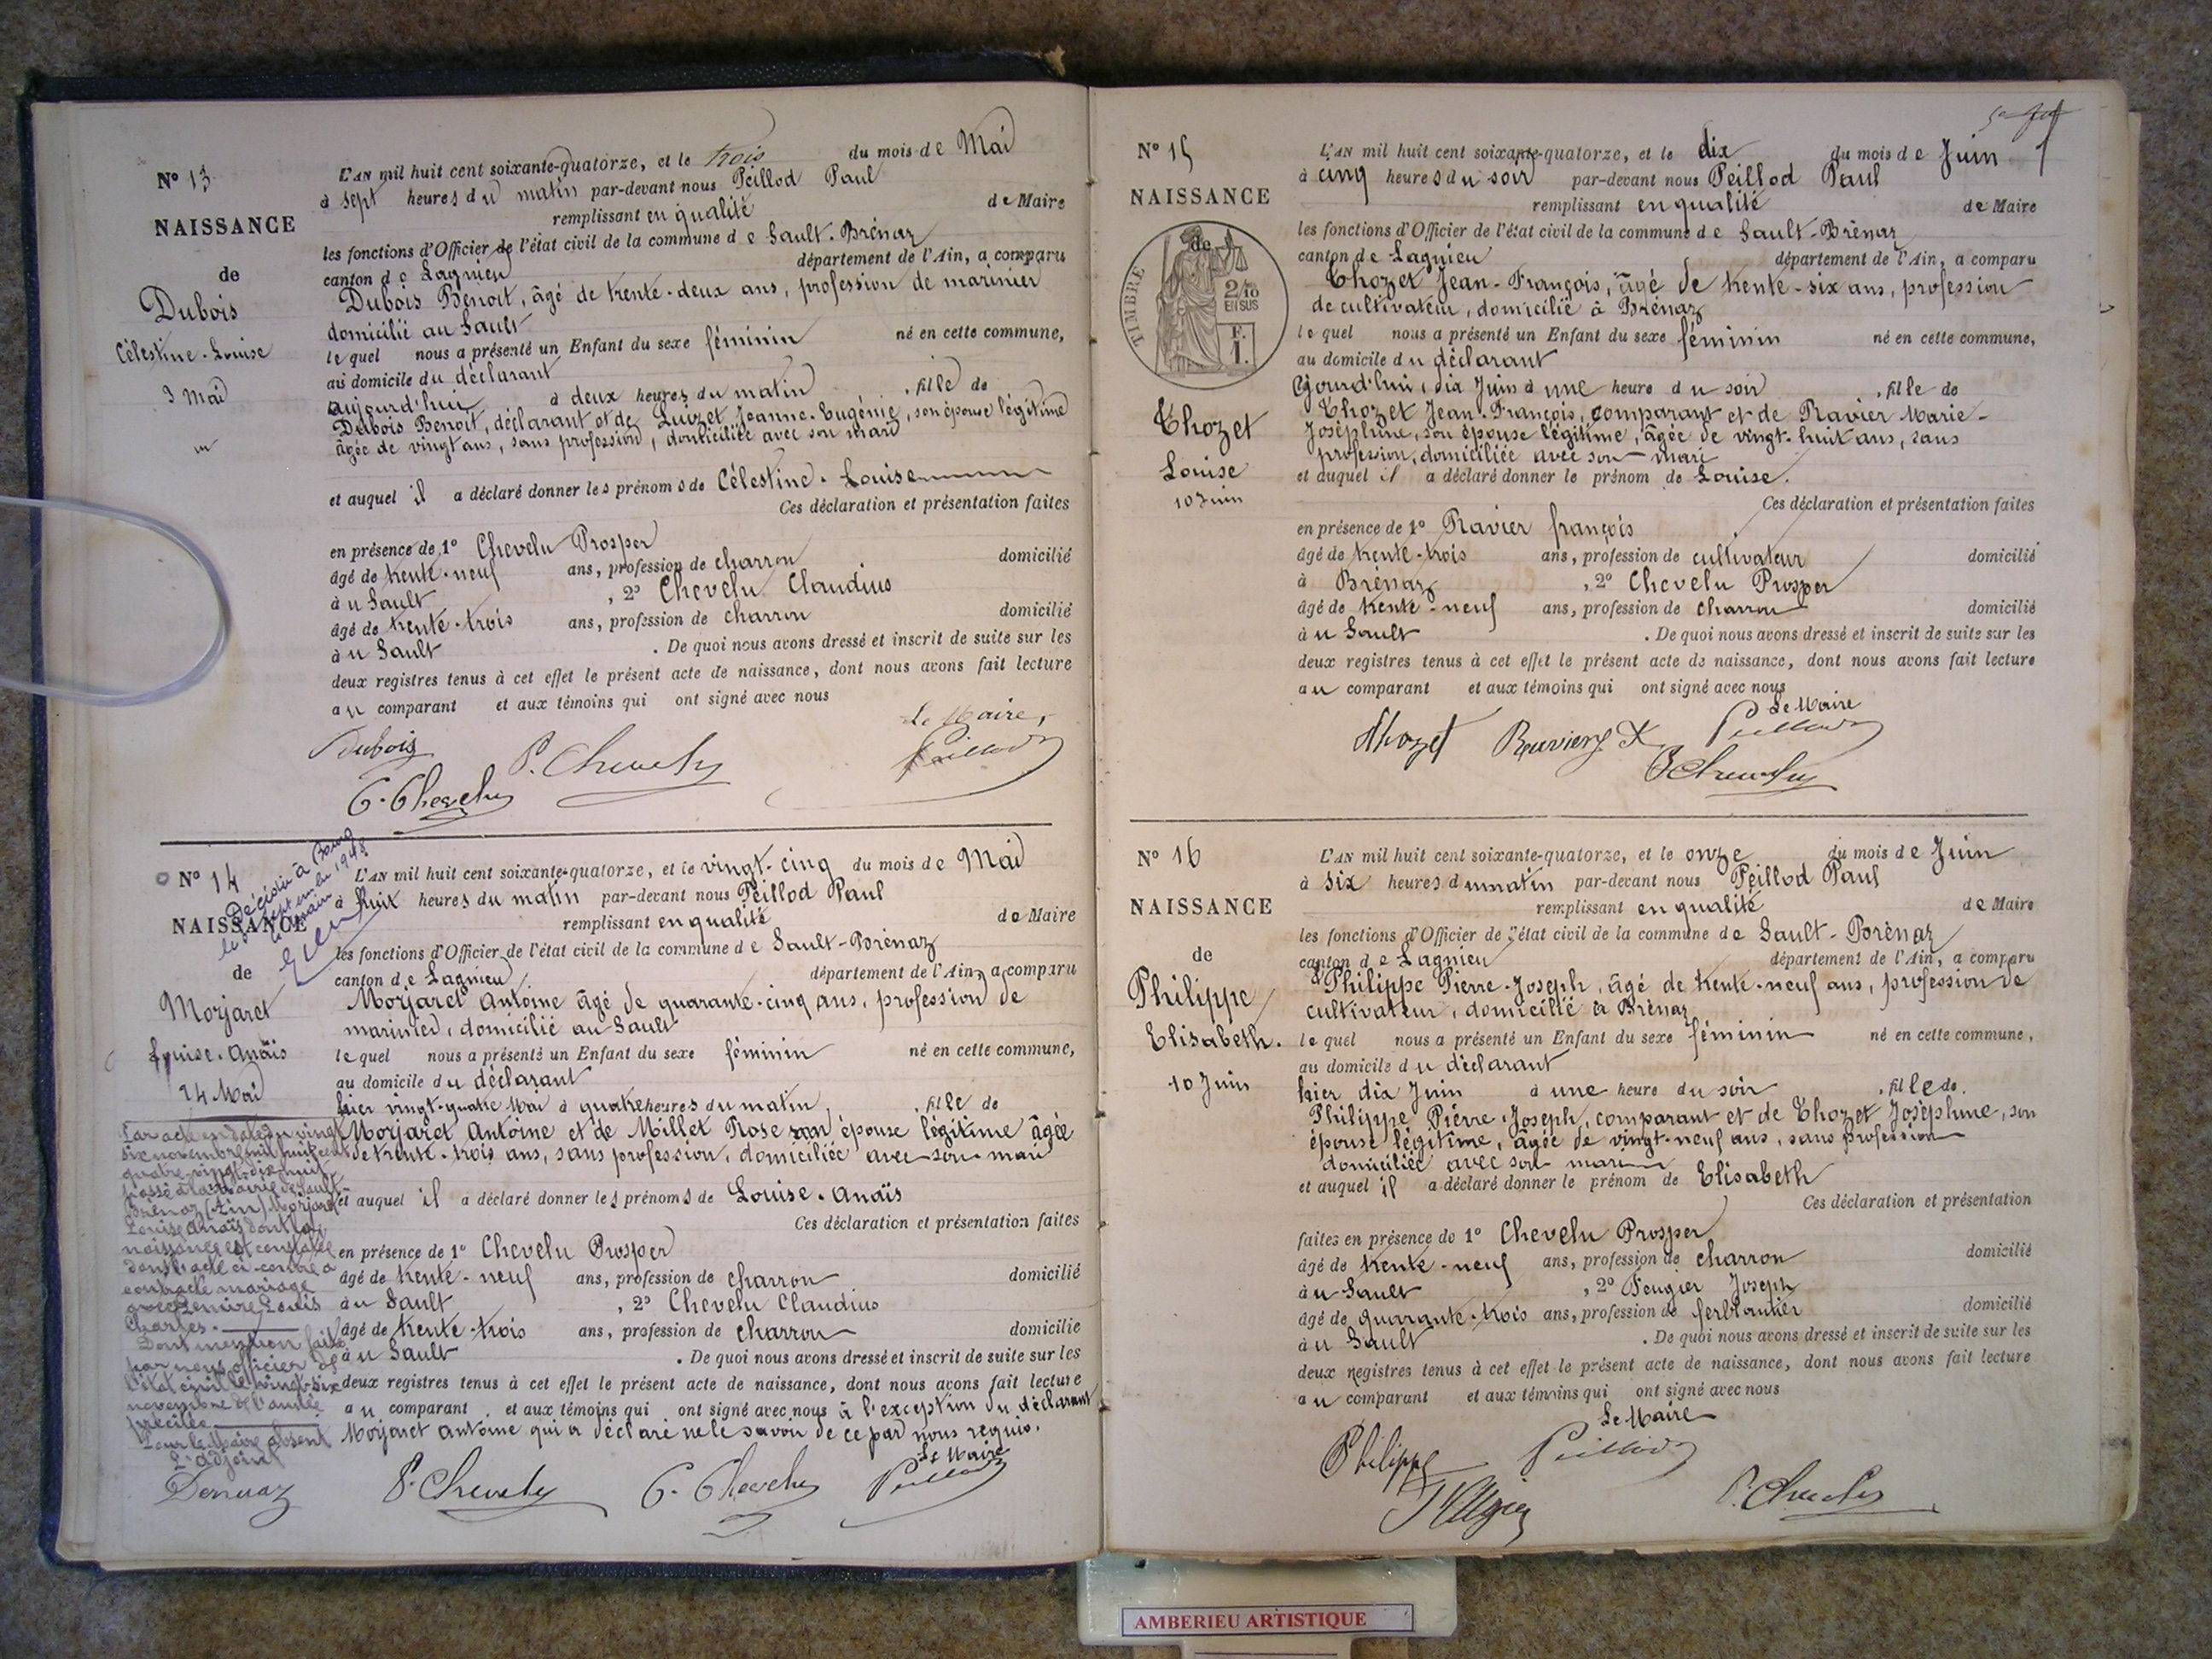 N° 13
NAISSANCE
de
Dubois
Célestine-Louise
3 Mai
L'AN mil huit cent soixante-quatorze, et le trois du mois de Mai
à sept heures du matin par-devant nous Peillod Paul
remplissant en qualité de Maire
les fonctions d'Officier de l'état civil de la commune de Sault-Brénaz
canton de Lagnieu département de l'Ain, a comparu
Dubois Benoit, âgé de trente-deux ans, profession de marinier
domicilié au Sault
lequel nous a présenté un Enfant du sexe féminin né en cette commune,
au domicile du déclarant
aujourd'hui à deux heures du matin, fille de
Dubois Benoit, déclarant et de Luizet Jeanne-Eugénie, son épouse légitime
âgée de vingt ans, sans profession, domiciliée avec son mari
et auquel il a déclaré donner les prénoms de Célestine-Louise
Ces déclaration et présentation faites
en présence de 1° Chevelu Prosper
âgé de trente-neuf ans, profession de charron domicilié
au Sault, 2° Chevelu Claudius
âgé de trente-trois ans, profession de charron domicilié
au Sault. De quoi nous avons dressé et inscrit de suite sur les
deux registres tenus à cet effet le présent acte de naissance, dont nous avons fait lecture
au comparant et aux témoins qui ont signé avec nous
Le Maire,
Dubois P. Chevelu Peillod
C. Chevelu
N° 14
NAISSANCE
de
Morjaret
Louise-Anaïs
24 Mai
Décédée à Bourg
le septembre 1948
L'AN mil huit cent soixante-quatorze, et le vingt-cinq du mois de Mai
à huit heures du matin par-devant nous Peillod Paul
remplissant en qualité de Maire
les fonctions d'Officier de l'état civil de la commune de Sault-Brénaz
canton de Lagnieu département de l'Ain, a comparu
Morjaret Antoine âgé de quarante-cinq ans, profession de
marinier, domicilié au Sault
lequel nous a présenté un Enfant du sexe féminin né en cette commune,
au domicile du déclarant
hier vingt-quatre Mai à quatre heures du matin, fille de
Morjaret Antoine et de Millet Rose son épouse légitime âgée
de trente-trois ans, sans profession, domiciliée avec son mari
et auquel il a déclaré donner les prénoms de Louise-Anaïs
Ces déclaration et présentation faites
en présence de 1° Chevelu Prosper
âgé de trente-neuf ans, profession de charron domicilié
au Sault, 2° Chevelu Claudius
âgé de trente-trois ans, profession de charron domicilié
au Sault. De quoi nous avons dressé et inscrit de suite sur les
deux registres tenus à cet effet le présent acte de naissance, dont nous avons fait lecture
au comparant et aux témoins qui ont signé avec nous à l'exception du déclarant
Morjaret Antoine qui a déclaré ne le savoir de ce par nous requis.
Le Maire
P. Chevelu C. Chevelu Peillod
Par acte en date du vingt
six novembre mil huit cent
quatre-vingt-dix-neuf
passé à la Mairie de Sault-
Brénaz (Ain) Morjaret
Louise Anaïs dont la
naissance est constatée
dans l'acte ci-contre a
contracté mariage
avec Louis
Charles.
Dont mention faite
par nous officier de
l'état civil le vingt-six
novembre de l'année
précitée
Pour le Maire absent
L'adjoint
N° 15
NAISSANCE
de
TIMBRE
2/10
EN SUS
F.
1.
Thozet
Louise
10 Juin
L'AN mil huit cent soixante-quatorze, et le dix du mois de Juin
à cinq heures du soir par-devant nous Peillod Paul
remplissant en qualité de Maire
les fonctions d'Officier de l'état civil de la commune de Sault-Brénaz
canton de Lagnieu département de l'Ain, a comparu
Thozet Jean-François, âgé de trente-six ans, profession
de cultivateur, domicilié à Brénaz
lequel nous a présenté un Enfant du sexe féminin né en cette commune,
au domicile du déclarant
aujourd'hui, dix Juin à une heure du soir, fille de
Thozet Jean-François, comparant et de Ravier Marie-
Joséphine, son épouse légitime, âgée de vingt-huit ans, sans
profession, domiciliée avec son mari
et auquel il a déclaré donner le prénom de Louise.
Ces déclaration et présentation faites
en présence de 1° Ravier françois
âgé de trente-trois ans, profession de cultivateur domicilié
à Brénaz, 2° Chevelu Prosper
âgé de trente-neuf ans, profession de charron domicilié
au Sault. De quoi nous avons dressé et inscrit de suite sur les
deux registres tenus à cet effet le présent acte de naissance, dont nous avons fait lecture
au comparant et aux témoins qui ont signé avec nous
Le Maire
Thozet Peillod
P. Chevelu
N° 16
NAISSANCE
de
Philippe
Elisabeth.
10 Juin
L'AN mil huit cent soixante-quatorze, et le onze du mois de Juin
à six heures du matin par-devant nous Peillod Paul
remplissant en qualité de Maire
les fonctions d'Officier de l'état civil de la commune de Sault-Brénaz
canton de Lagnieu département de l'Ain, a comparu
Philippe Pierre-Joseph, âgé de trente-neuf ans, profession de
cultivateur, domicilié à Brénaz
lequel nous a présenté un Enfant du sexe féminin né en cette commune,
au domicile du déclarant
hier dix Juin à une heure du soir, fille de
Philippe Pierre-Joseph, comparant et de Thozet Joséphine, son
épouse légitime, âgée de vingt-neuf ans, sans profession
domiciliée avec son mari
et auquel il a déclaré donner le prénom de Elisabeth
Ces déclaration et présentation
faites en présence de 1° Chevelu Prosper
âgé de trente-neuf ans, profession de charron domicilié
au Sault, 2° Feugier Joseph
âgé de quarante-trois ans, profession de ferblantier domicilié
au Sault. De quoi nous avons dressé et inscrit de suite sur les
deux registres tenus à cet effet le présent acte de naissance, dont nous avons fait lecture
au comparant et aux témoins qui ont signé avec nous
Le Maire
Philippe Peillod
P. Chevelu
AMBERIEU ARTISTIQUE